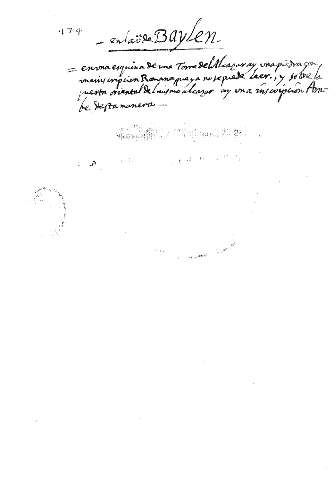 174
en la ciu.de Baylen.
= en una esquina de una Torre del Alcazar ay una piedra con
una inscripcion Romana que ya no se puede Leer, y sobre la
puerta oriental del mismo alcazar ay una inscripcion Ara-
be. desta manera —